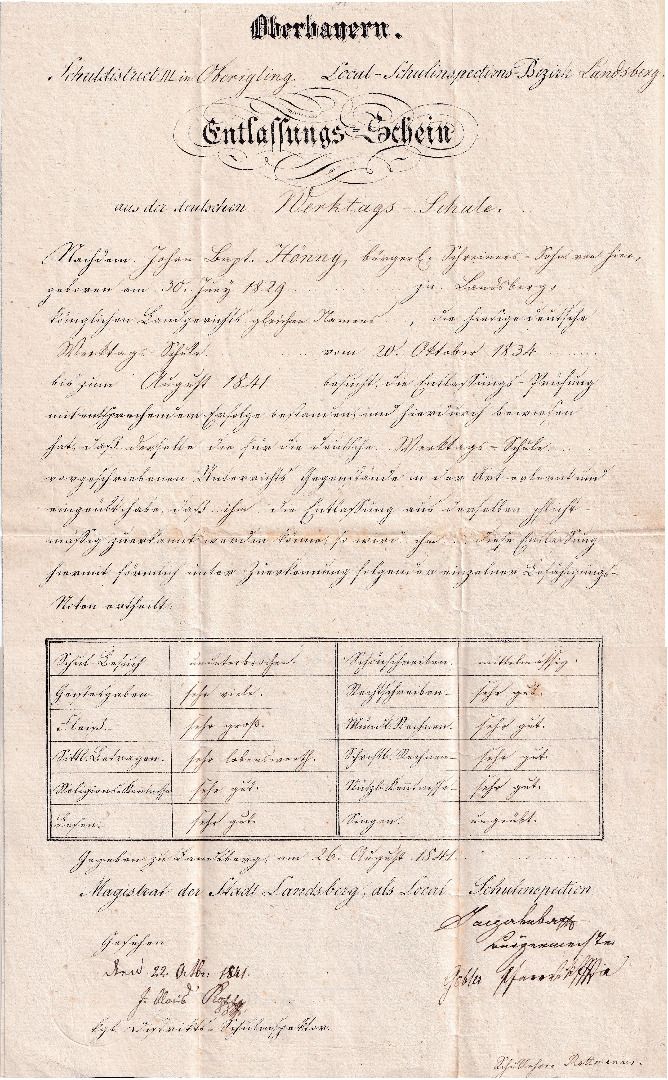 Oberbayern.
Schuldistrict III in Oberigling. Local-Schulinspections-Bezirk Landsberg.
Entlassungs-Schein
aus der deutschen Werktags-Schule.
Nachdem Johan Bapt. Hönny, bürgerl. Schreiners-Sohn von hier,
geboren am 30. Juny 1829 zu Landsberg,
königlichen Landgerichts gleichen Namens, die hiesige deutsche
Werktags-Schule vom 20. Oktober 1834
bis zum August 1841 besucht, die Entlassungs-Prüfung
mit entsprechendem Erfolge bestanden, und hierdurch bewiesen
hat, daß derselbe die für die deutsche Werktags-Schule
vorgeschriebenen Unterrichts Gegenstände in der Art erlernt und
eingeübt habe, daß ihm die Entlassung aus derselben pflicht-
mäßig zuerkannt werden könne; so wird ihm diese Entlassung
hiermit förmlich unter Zuerkennung folgender einzelner Befähigungs-
Noten ertheilt:
Schul Besuch ununterbrochen. Schönschreiben. mittelmässig.
Geistesgaben sehr viele. Rechtschreiben. sehr gut.
Fleiß sehr groß. Mündl. Rechnen. sehr gut.
Sittl. Betragen. sehr lobenswerth. Schriftl. Rechnen sehr gut.
Religions-Kenntnisse sehr gut. Nützl. Kenntnisse sehr gut.
Lesen. sehr gut. Singen. ungeübt.
Gegeben zu Landsberg, am 26. August 1841.
Magistrat der Stadt Landsberg, als Local-Schulinspection
Bürgermeister
Gesehen
den 22. Octbr. 1841.
Kgl. Distrikts-Schulinspektor.
Schullehrer